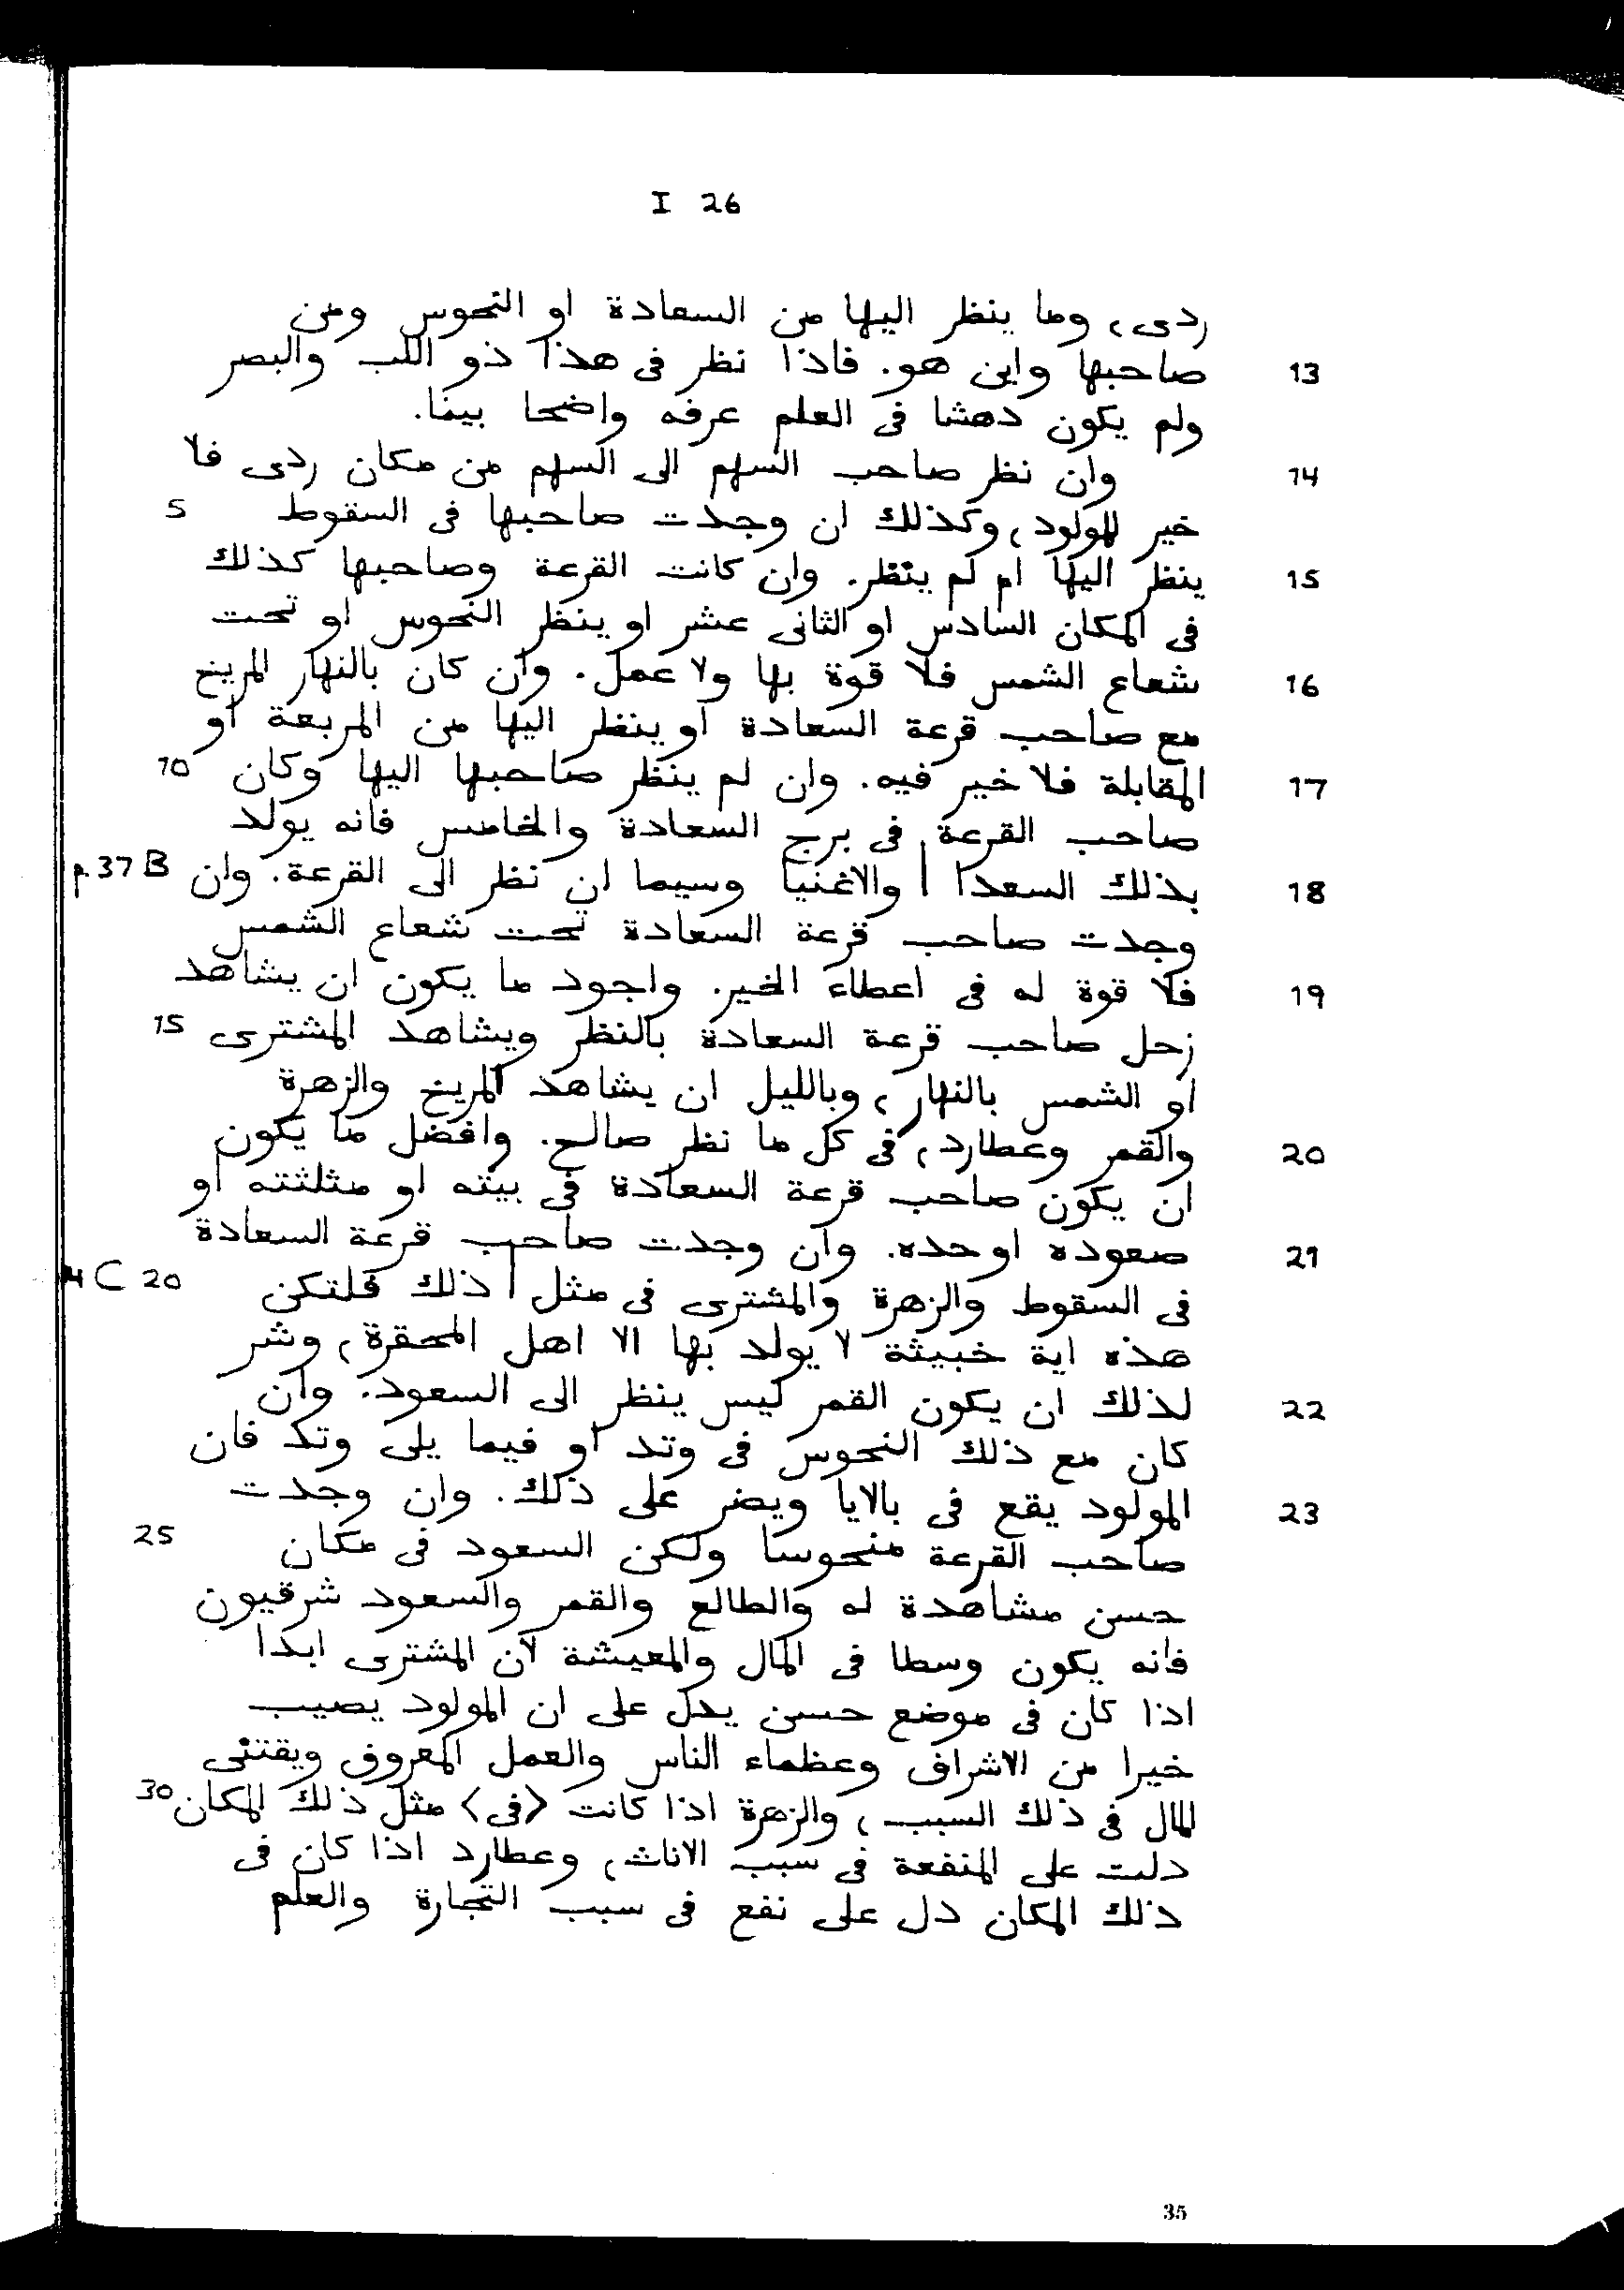 I 26
ردى، وما ينظر اليها من السعادة او النحوس ومن
13 صاحبها واين هو. فاذا نظر فى هذا ذو اللب والبصر
ولم يكون دهشا فى العلم عرفه واضحا بينا.
14 وان نظر صاحب السهم الى السهم من مكان ردى فلا
خير للمولود، وكذلك ان وجدت صاحبها فى السقوط 5
15 ينظر اليها ام لم ينظر. وان كانت القرعة وصاحبها كذلك
فى المكان السادس او الثانى عشر او ينظر النحوس او تحت
16 شعاع الشمس فلا قوة بها ولا عمل. وان كان بالنهار المريخ
مع صاحب قرعة السعادة او ينظر اليها من المربعة او
17 المقابلة فلا خير فيه. وان لم ينظر صاحبها اليها وكان 10
صاحب القرعة فى برج السعادة والخامس فانه يولد
18 بذلك السعدا | والاغنيا وسيما ان نظر الى القرعة. وان p. 37 B
وجدت صاحب قرعة السعادة تحت شعاع الشمس
19 فلا قوة له فى اعطاء الخير. واجود ما يكون ان يشاهد
زحل صاحب قرعة السعادة بالنظر ويشاهد المشترى 15
او الشمس بالنهار، وبالليل ان يشاهد المريخ والزهرة
20 والقمر وعطارد، فى كل ما نظر صالح. وافضل ما يكون
ان يكون صاحب قرعة السعادة فى بيته او مثلثته او
21 صعوده او حده. وان وجدت صاحب قرعة السعادة
فى السقوط والزهرة والمشترى فى مثل | ذلك فلتكن 20 C
هذه اية خبيثة لا يولد بها الا اهل المحقرة، وشر
22 لذلك ان يكون القمر ليس ينظر الى السعود. وان
كان مع ذلك النحوس فى وتد او فيما يلى وتد فان
23 المولود يقع فى بالايا ويضر على ذلك. وان وجدت
صاحب القرعة منحوسا ولكن السعود فى مكان 25
حسن مشاهدة له والطالع والقمر والسعود شرقيون
فانه يكون وسطا فى المال والمعيشة لان المشترى ابدا
اذا كان فى موضع حسن يدل على ان المولود يصيب
خيرا من الاشراف وعظماء الناس والعمل المعروف ويقتنى
المال فى ذلك السبب، والزهرة اذا كانت <فى> مثل ذلك المكان 30
دلت على المنفعة فى سبب الاناث، وعطارد اذا كان فى
ذلك المكان دل على نفع فى سبب التجارة والعلم
35